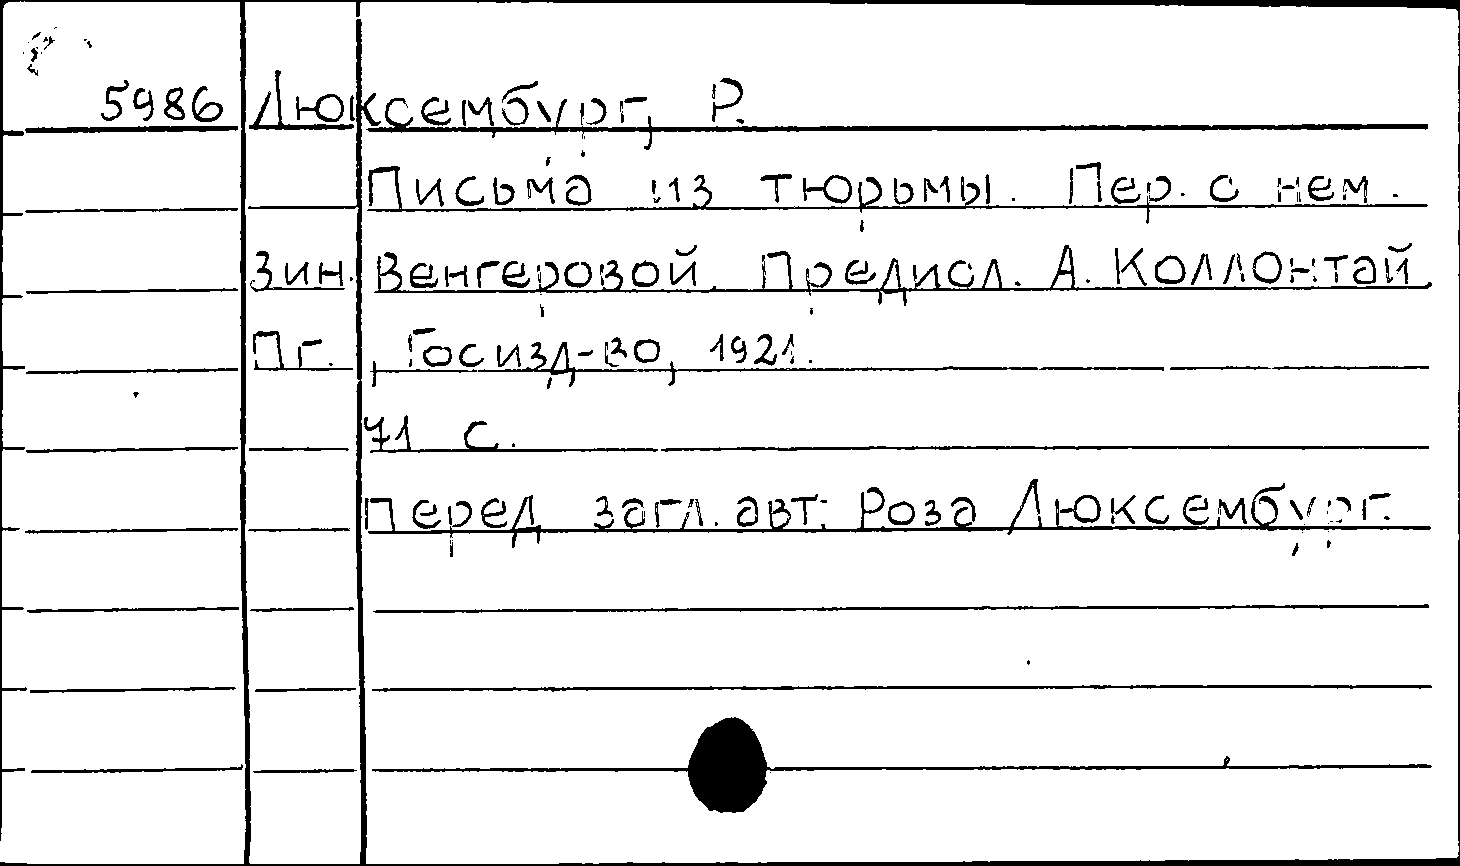 5986 Люксембург, Р.
Письма из тюрьмы. Пер. с нем.
Зин. Венгеровой. Предисл. А. Коллонтай.
Пг., Госизд-во, 1921.
71 с.
Перед загл. авт.: Роза Люксембург.